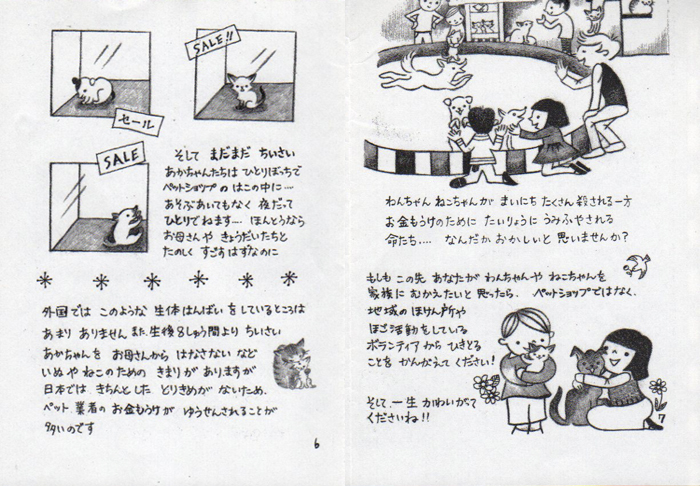 SALE!!
セール
SALE
そして まだまだ ちいさい
あかちゃんたちは ひとりぼっちで
ペットショップの はこの中に…
あそぶあいてもなく 夜だって
ひとりでねます…. ほんとうなら
お母さんや きょうだいたちと
たのしく すごすはずなのに
外国では このような 生体はんばい をしているところは
あまり ありません また 生後8しゅう間より ちいさい
あかちゃんを お母さんから はなさない など
いぬや ねこのための きまり がありますが
日本では きちんとした とりきめが ないため、
ペット 業者の お金もうけが ゆうせんされることが
多いのです
6
わんちゃん ねこちゃんが まいにち たくさん 殺される一方
お金もうけのために たいりょうに うみふやされる
命たち…. なんだか おかしいと 思いませんか?
もしも この先 あなたが わんちゃんや ねこちゃんを
家族に むかえたいと 思ったら、 ペットショップではなく、
地域の ほけん所や
ほご活動をしている
ボランティアから ひきとる
ことを かんがえてください!
そして 一生 かわいがって
くださいね!!
7